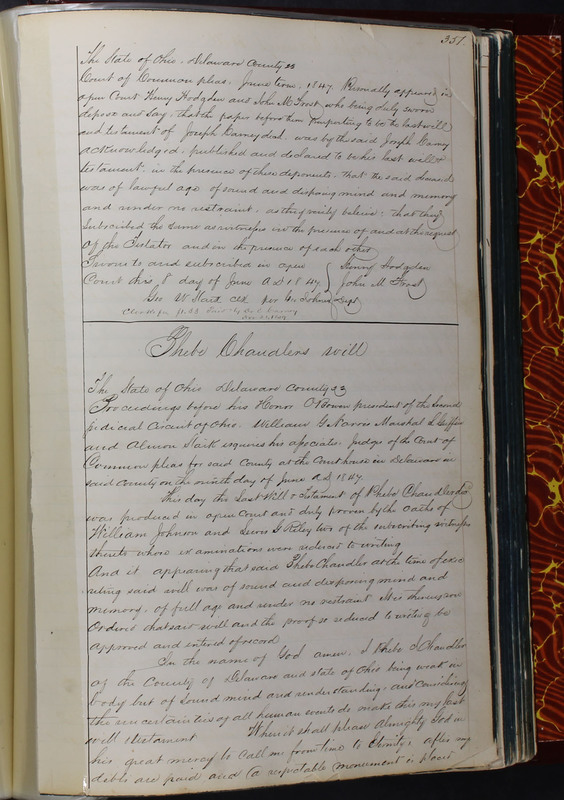 357
The State of Ohio, Delaware County ss
Court of Common pleas, June term, 1847. Personally appeared in
open Court Henry Hodgden and John M Frost who being duly sworn
depose and Say, that the paper before them purporting to be the last will
and testament of Joseph Carney decd. was by the said Joseph Carney
acknowledged, published and declared to be his last will &
testament, in the presence of these deponents. That the said deceased
was of lawful age of sound and disposing mind and memory
and under no restraint, as they verily believe: that they
Subscribed the same as witnesses in the presence of and at the request
Of the Testator and in the presence of each other
Sworn to and subscribed in open Henry Hodgden
Court this 8 day of June A D 1847 John M Frost
Geo W Stark clk per
Phebe Chandlers will
The State of Ohio Delaware County ss
Proceedings before his Honor O Bowen president of the Second
judicial Circuit of Ohio. William G Norris Marshal L Griffin
and Almon Stark esquires his associate Judges of the Court of
Common pleas for said County at the Courthouse in Delaware in
said County on the ninth day of June A D 1847.
This day the Last Will & Testament of Phebe Chandler decd
was produced in open Court and duly proven by the oaths of
William Johnson and Lewis G Riley two of the subscribing witnesses
thereto whose examinations were reduced to writing
And it appearing that said Phebe Chandler at the time of exe
cuting said will was of sound and disposing mind and
memory, of full age and under no restraint It is thereupon
Ordered that said will and the proof so reduced to writing be
approved and entered of record
In the name of God amen. I Phebe Chandler
of the County of Delaware and State of Ohio being weak in
body but of sound mind and understanding, and Considering
the uncertainties of all human events do make this my last
will & testament When it shall please Almighty God in
his great mercy to Call me from time to Eternity, after my
debts are paid and (a respectable monument is placed